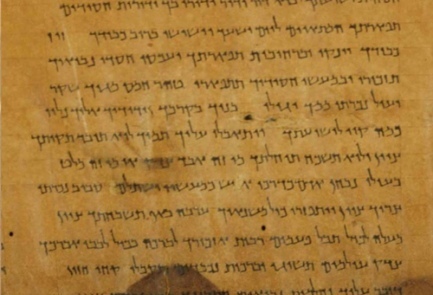 ודור ידורו בך ודורות חסידים
תפארתך המתאוים ליום ישעך וישישו ברוב כבודך זיז
כבודך יינקו וברחובות תפארתך יעכסו חסדי נביאיך
תזכורי ובמעשי חסידיך תתפארי טהר חמס מגוך שקר
ועול נכרתו ממך יגילו בניך בקרבך וידידיך אליך נלוו
כמה קוו לישועתך ויתאבלו עליך תמיך לוא תובד תקותך
ציון ולוא תשכח תוחלתך מי זה אבד צדק או מי זה מלט
בעולו נבחן אדם כדרכו איש כמעשיו ישתלם סביב נכרתו
צריך ציון ויתפזרו כול משנאיך ערבה באף תשבחתך ציון
מעלה לכול תבל פעמים רבות אזכירך לברכה בכול לבבי אברכך
צדק עולמים תשיגי וברכות נכבדים תקבלי קחי חזון
דובר עליך וחלמות נביאים